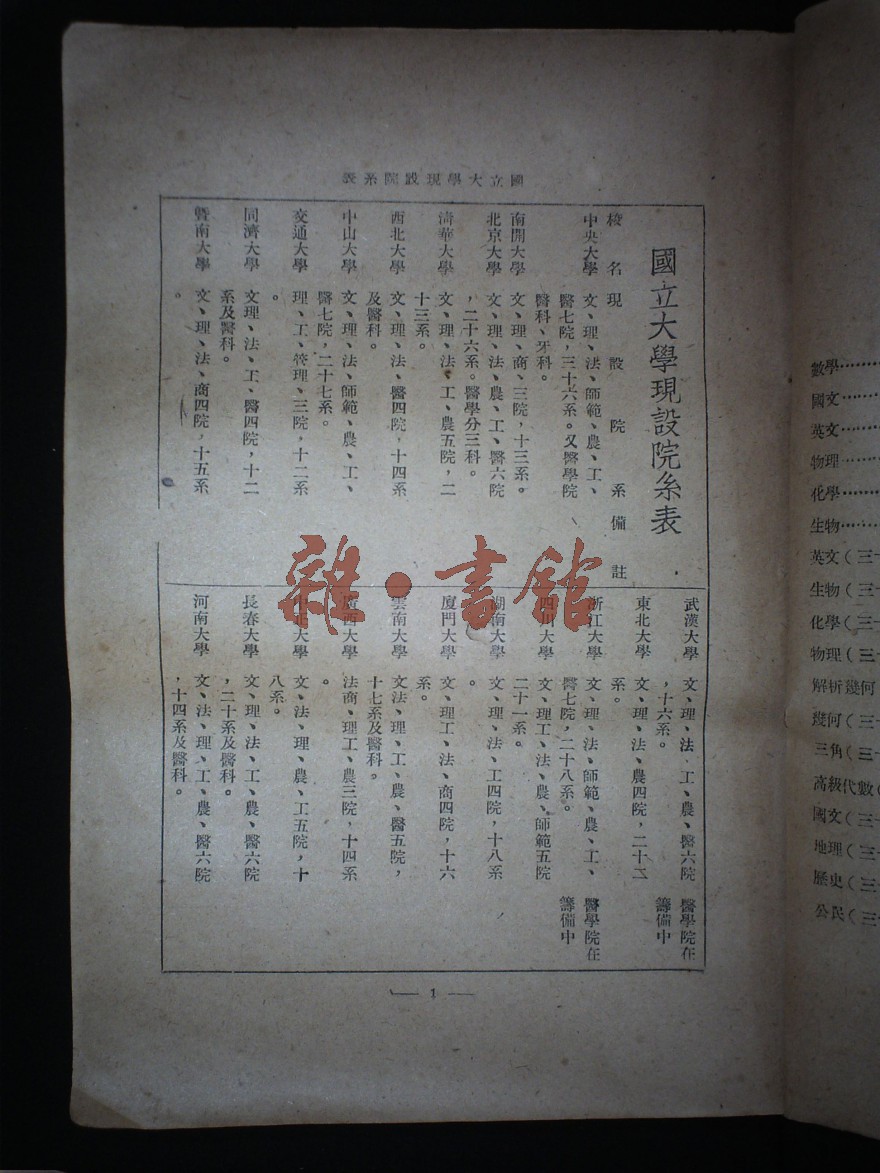 國立大學現設院系表
國立大學現設院系表
校名 現設院系 備註
中央大學 文、理、法、師範、農、工、
醫七院，三十六系。又醫學院
醫科、牙科。
南開大學 文、理、商、三院，十三系。
北京大學 文、理、法、農、工、醫六院
，二十六系。醫學分三科。
清華大學 文、理、法、工、農五院，二
十三系。
西北大學 文、理、法、醫四院，十四系
及醫科。
中山大學 文、理、法、師範、農、工、
醫七院，二十七系。
交通大學 理、工、管理、三院，十二系
。
同濟大學 文理、法、工、醫四院，十二
系及醫科。
暨南大學 文、理、法、商四院，十五系
。
武漢大學 文、理、法、工、農、醫六院 醫學院在
，十六系。 籌備中
東北大學 文、理、法、農四院，二十二
系。
浙江大學 文、理、法、師範、農、工、 醫學院在
醫七院，二十八系。 籌備中
四川大學 文、理工、法、農、師範五院
二十一系。
湖南大學 文、理、法、工四院，十八系
。
廈門大學 文、理工、法、商四院，十六
系。
雲南大學 文法、理、工、農、醫五院，
十七系及醫科。
廣西大學 法商、理工、農三院，十四系
。
中正大學 文、法、理、農、工五院，十
八系。
長春大學 文、理、法、工、農、醫六院
，二十系及醫科。
河南大學 文、法、理、工、農、醫六院
，十四系及醫科。
— 1 —
雜·書館
數學……
國文……
英文……
物理……
化學……
生物……
英文(三十
生物(三十
化學(三十
物理(三十
解析幾何
幾何(三十
三角(三十
高級代數(
國文(三十
地理(三十
歷史(三十
公民(三十